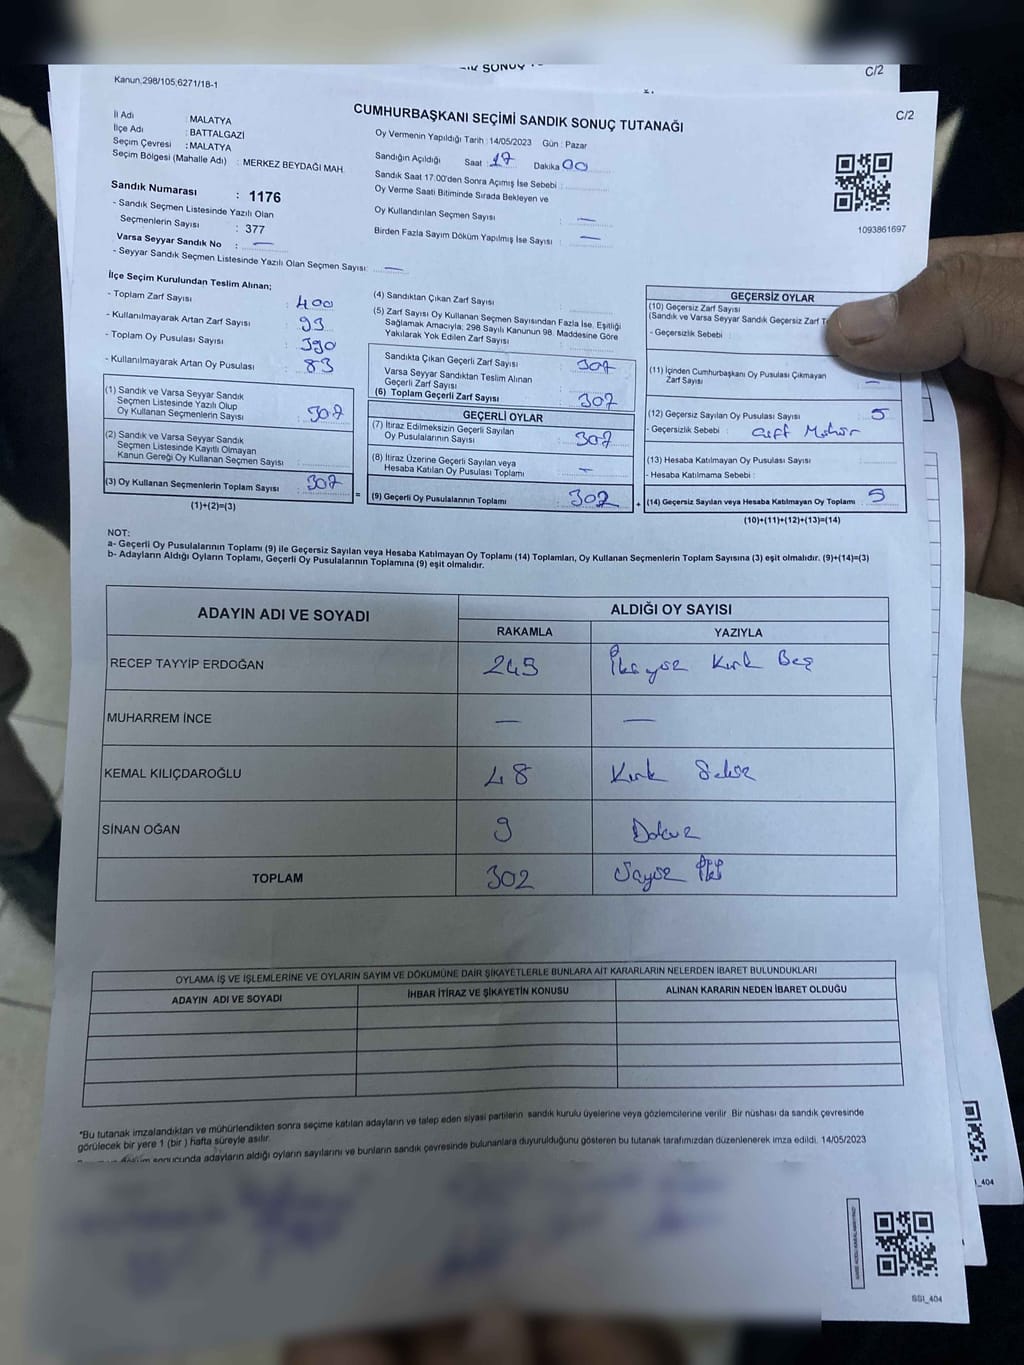 C/2
Kanun,298/105;6271/18-1
C/2
CUMHURBAŞKANI SEÇİMİ SANDIK SONUÇ TUTANAĞI
İl Adı : MALATYA
İlçe Adı : BATTALGAZİ
Seçim Çevresi : MALATYA
Seçim Bölgesi (Mahalle Adı) : MERKEZ BEYDAĞI MAH.
Sandık Numarası : 1176
- Sandık Seçmen Listesinde Yazılı Olan
Seçmenlerin Sayısı : 377
Varsa Seyyar Sandık No : —
- Seyyar Sandık Seçmen Listesinde Yazılı Olan Seçmen Sayısı: —
Oy Vermenin Yapıldığı Tarih : 14/05/2023 Gün : Pazar
Sandığın Açıldığı Saat : 17 Dakika 00
Sandık Saat 17.00'den Sonra Açımış İse Sebebi :
Oy Verme Saati Bitiminde Sırada Bekleyen ve
Oy Kullandırılan Seçmen Sayısı : —
Birden Fazla Sayım Döküm Yapılmış İse Sayısı : —
1093861697
İlçe Seçim Kurulundan Teslim Alınan;
- Toplam Zarf Sayısı : 400
- Kullanılmayarak Artan Zarf Sayısı : 93
- Toplam Oy Pusulası Sayısı : 390
- Kullanılmayarak Artan Oy Pusulası : 83
(1) Sandık ve Varsa Seyyar Sandık
Seçmen Listesinde Yazılı Olup
Oy Kullanan Seçmenlerin Sayısı : 307
(2) Sandık ve Varsa Seyyar Sandık
Seçmen Listesinde Kayıtlı Olmayan
Kanun Gereği Oy Kullanan Seçmen Sayısı :
(3) Oy Kullanan Seçmenlerin Toplam Sayısı : 307
(1)+(2)=(3)
=
(4) Sandıktan Çıkan Zarf Sayısı :
(5) Zarf Sayısı Oy Kullanan Seçmen Sayısından Fazla İse, Eşitliği
Sağlamak Amacıyla; 298 Sayılı Kanunun 98. Maddesine Göre
Yakılarak Yok Edilen Zarf Sayısı :
Sandıkta Çıkan Geçerli Zarf Sayısı : 307
Varsa Seyyar Sandıktan Teslim Alınan
Geçerli Zarf Sayısı :
(6) Toplam Geçerli Zarf Sayısı : 307
GEÇERLİ OYLAR
(7) İtiraz Edilmeksizin Geçerli Sayılan
Oy Pusulalarının Sayısı : 302
(8) İtiraz Üzerine Geçerli Sayılan veya
Hesaba Katılan Oy Pusulası Toplamı : —
(9) Geçerli Oy Pusulalarının Toplamı : 302
+
GEÇERSİZ OYLAR
(10) Geçersiz Zarf Sayısı
(Sandık ve Varsa Seyyar Sandık Geçersiz Zarf
- Geçersizlik Sebebi :
(11) İçinden Cumhurbaşkanı Oy Pusulası Çıkmayan
Zarf Sayısı : —
(12) Geçersiz Sayılan Oy Pusulası Sayısı : 5
- Geçersizlik Sebebi : Çift Mühür
(13) Hesaba Katılmayan Oy Pusulası Sayısı :
- Hesaba Katılmama Sebebi :
(14) Geçersiz Sayılan veya Hesaba Katılmayan Oy Toplamı : 5
(10)+(11)+(12)+(13)=(14)
NOT:
a- Geçerli Oy Pusulalarının Toplamı (9) ile Geçersiz Sayılan veya Hesaba Katılmayan Oy Toplamı (14) Toplamları, Oy Kullanan Seçmenlerin Toplam Sayısına (3) eşit olmalıdır. (9)+(14)=(3)
b- Adayların Aldığı Oyların Toplamı, Geçerli Oy Pusulalarının Toplamına (9) eşit olmalıdır.
ADAYIN ADI VE SOYADI
ALDIĞI OY SAYISI
RAKAMLA YAZIYLA
RECEP TAYYİP ERDOĞAN 245 İkiyüz Kırk Beş
MUHARREM İNCE — —
KEMAL KILIÇDAROĞLU 48 Kırk Sekiz
SİNAN OĞAN 9 Dokuz
TOPLAM 302 Üçyüz İki
OYLAMA İŞ VE İŞLEMLERİNE VE OYLARIN SAYIM VE DÖKÜMÜNE DAİR ŞİKAYETLERLE BUNLARA AİT KARARLARIN NELERDEN İBARET BULUNDUKLARI
ADAYIN ADI VE SOYADI İHBAR İTİRAZ VE ŞİKAYETİN KONUSU ALINAN KARARIN NEDEN İBARET OLDUĞU
*Bu tutanak imzalandıktan ve mühürlendikten sonra seçime katılan adayların ve talep eden siyasi partilerin sandık kurulu üyelerine veya gözlemcilerine verilir. Bir nüshası da sandık çevresinde
görülecek bir yere 1 (bir ) hafta süreyle asılır.
sonucunda adayların aldığı oyların sayılarını ve bunların sandık çevresinde bulunanlara duyurulduğunu gösteren bu tutanak tarafımızdan düzenlenerek imza edildi. 14/05/2023
SSI_404